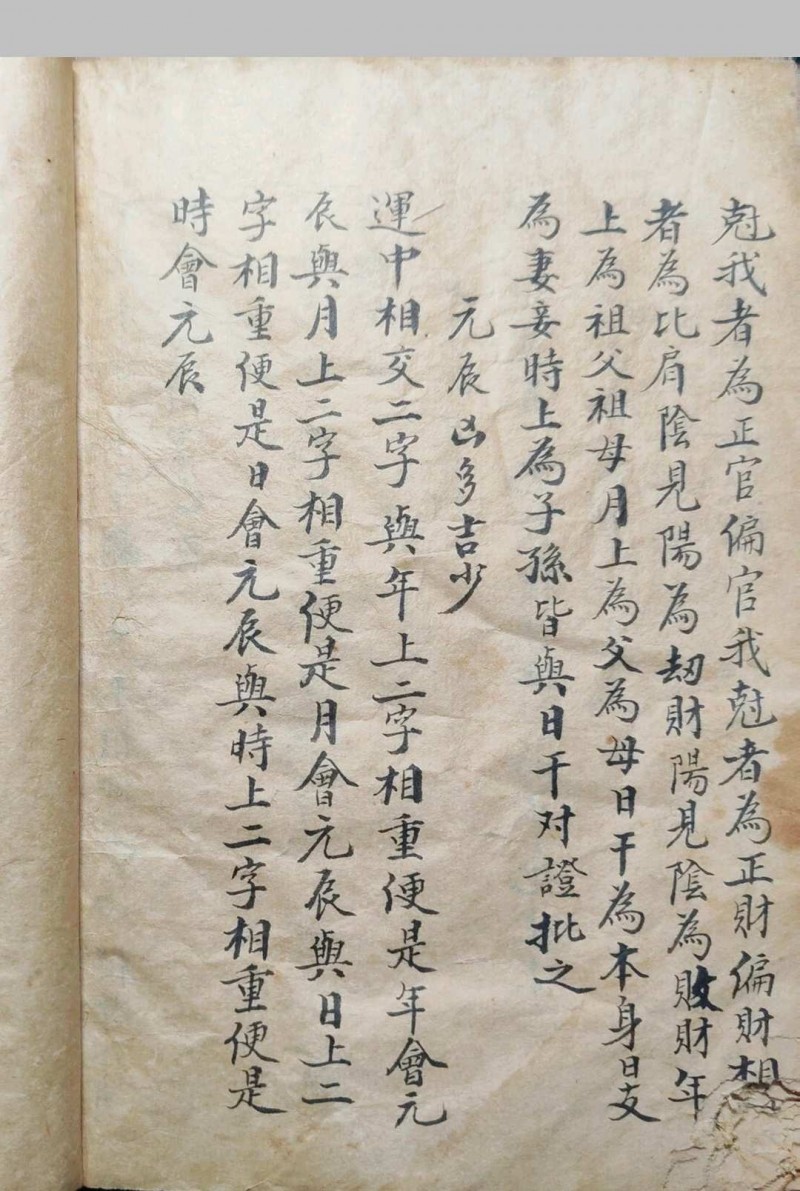 尅我者為正官偏官我尅者為正財偏財相
者為比肩陰見陽為刼財陽見陰為敗財年
上為祖父祖母月上為父為母日干為本身日支
為妻妾時上為子孫皆與日干对證批之
元辰凶多吉少
運中相交二字與年上二字相重便是年會元
辰與月上二字相重便是月會元辰與日上二
字相重便是日會元辰與時上二字相重便是
時會元辰